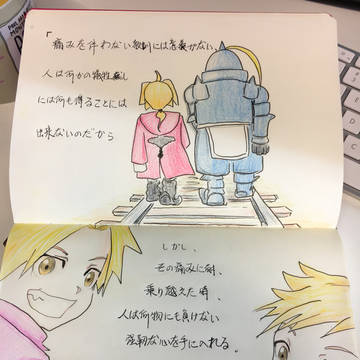 「痛みを伴わない教訓には意義がない、
人は何かの犠牲無し
には何も得ることは
出来ないのだから
しかし、
その痛みに耐え、
乗り越えた時、
人は何物にも負けない
強靭な心を手に入れる。